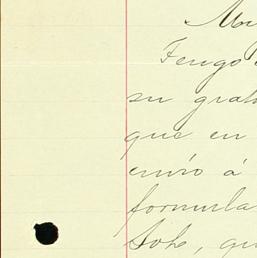 Mu
Tengo
su grat
que en
envio á
formula
Sole, qu